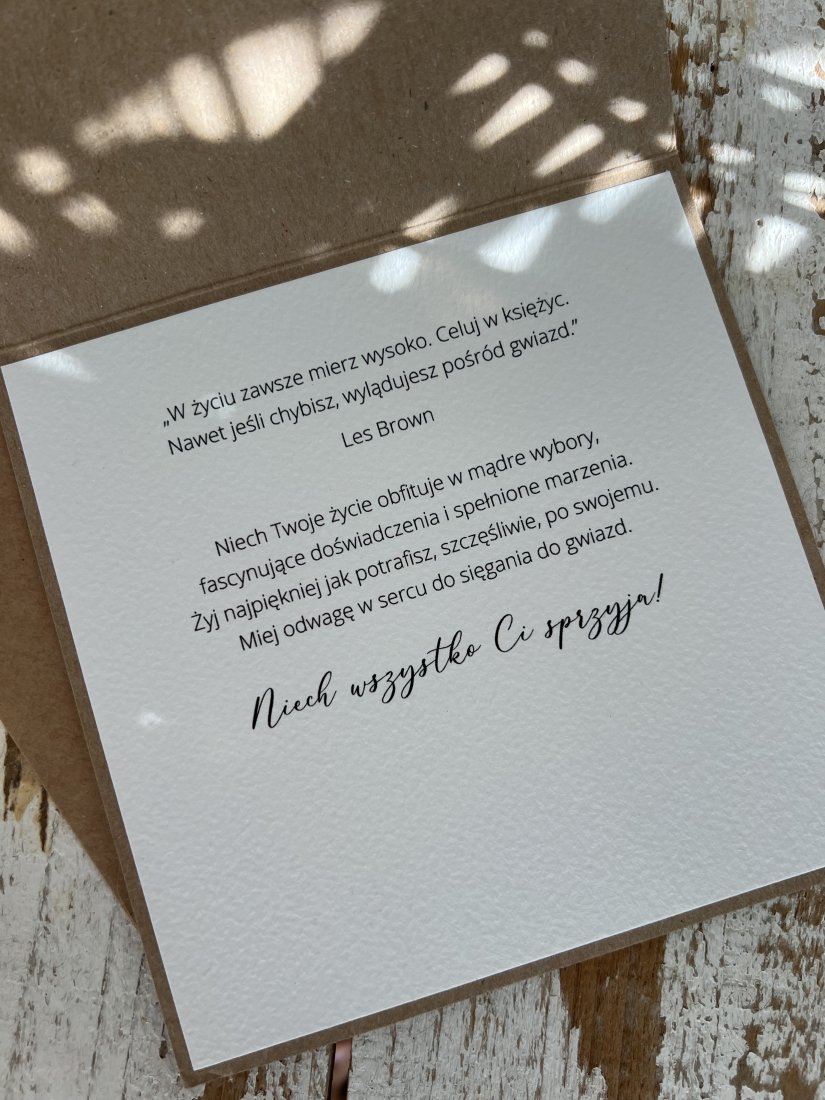 „W życiu zawsze mierz wysoko. Celuj w księżyc.
Nawet jeśli chybisz, wylądujesz pośród gwiazd.”
Les Brown
Niech Twoje życie obfituje w mądre wybory,
fascynujące doświadczenia i spełnione marzenia.
Żyj najpiękniej jak potrafisz, szczęśliwie, po swojemu.
Miej odwagę w sercu do sięgania do gwiazd.
Niech wszystko Ci sprzyja!